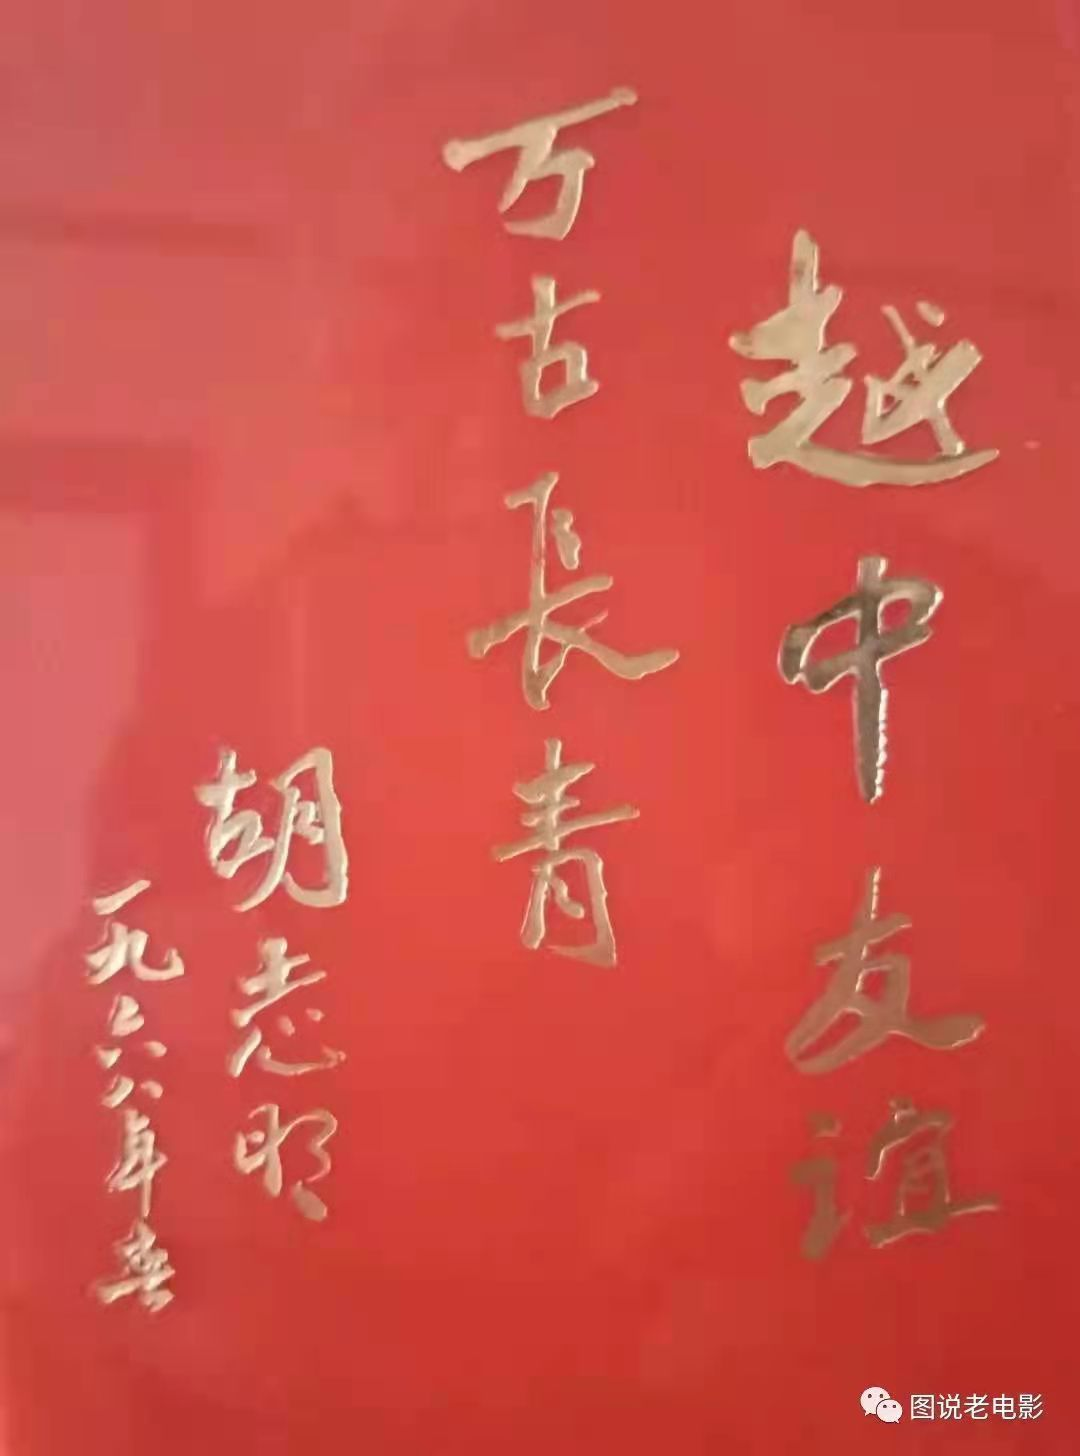 越中友谊
万古長青
胡志明
一九六八年春
图说老电影